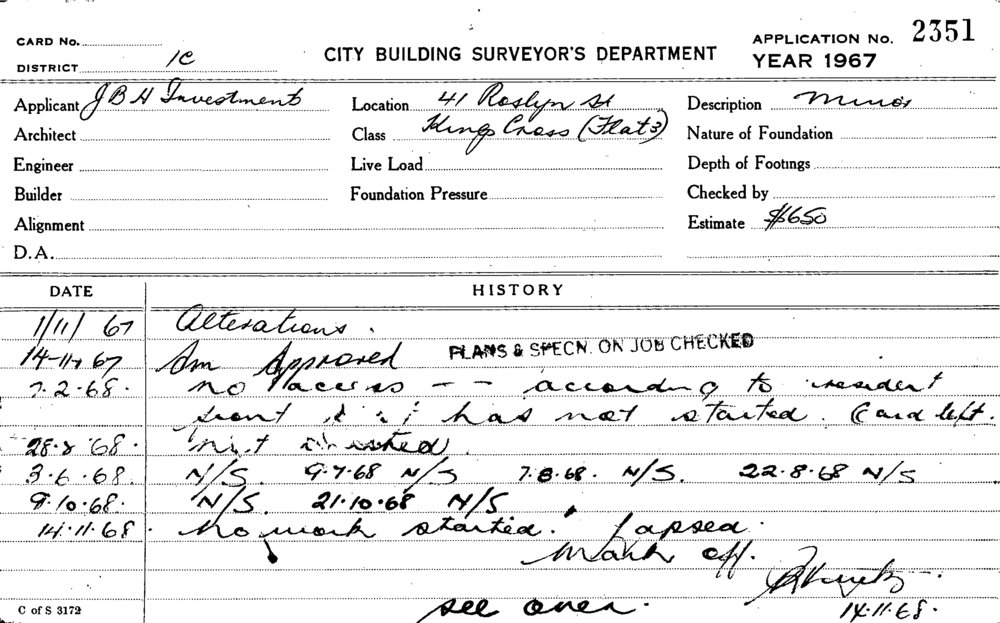 CARD No.
DISTRICT 1C
CITY BUILDING SURVEYOR'S DEPARTMENT
APPLICATION No. 2351
YEAR 1967
Applicant J B H Investment
Location 41 Roslyn St
Description Minor
Architect
Class Kings Cross (Flat 3)
Nature of Foundation
Engineer
Live Load
Depth of Footings
Builder
Foundation Pressure
Checked by
Alignment
Estimate $650
D.A.
DATE HISTORY
1/11/67 Alterations.
14-11-67 Approved PLANS & SPECN. ON JOB CHECKED
7.2.68. No access -- according to resident
has not started. Card left.
28.2.68.
3.6.68. N/S. 9.7.68 N/S 7.8.68. N/S. 22.8.68 N/S
9.10.68. N/S. 21.10.68 N/S
14.11.68. No work started. Lapsed.
Mark off.
14.11.68.
see over.
C of S 3172